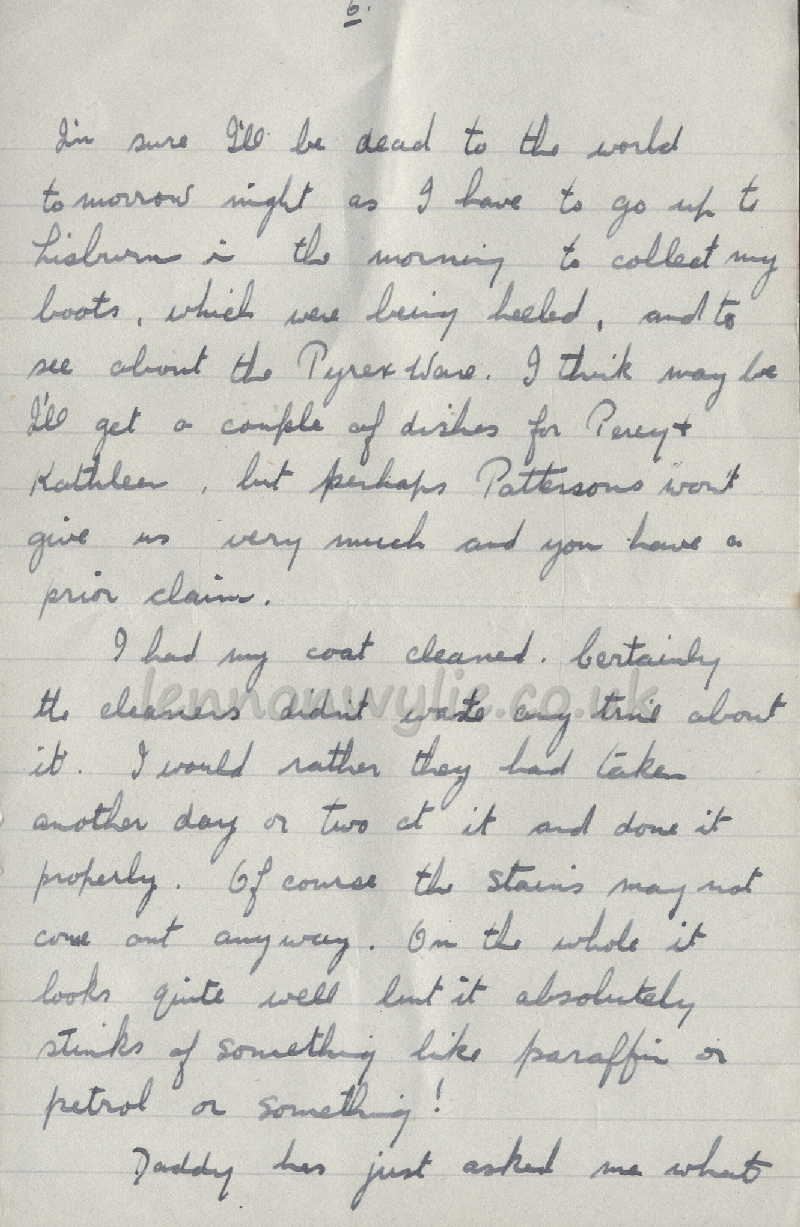 6.
I'm sure I'll be dead to the world
tomorrow night as I have to go up to
Lisburn in the morning to collect my
boots, which were being heeled, and to
see about the Pyrex Ware. I think may be
I'll get a couple of dishes for Percy +
Kathleen, but perhaps Pattersons won't
give us very much and you have a
prior claim.
I had my coat cleaned. Certainly
the cleaners didn't waste any time about
it. I would rather they had taken
another day or two at it and done it
properly. Of course the stains may not
come out anyway. On the whole it
looks quite well but it absolutely
stinks of something like paraffin or
petrol or something!
Daddy has just asked me what
lennonwylie.co.uk